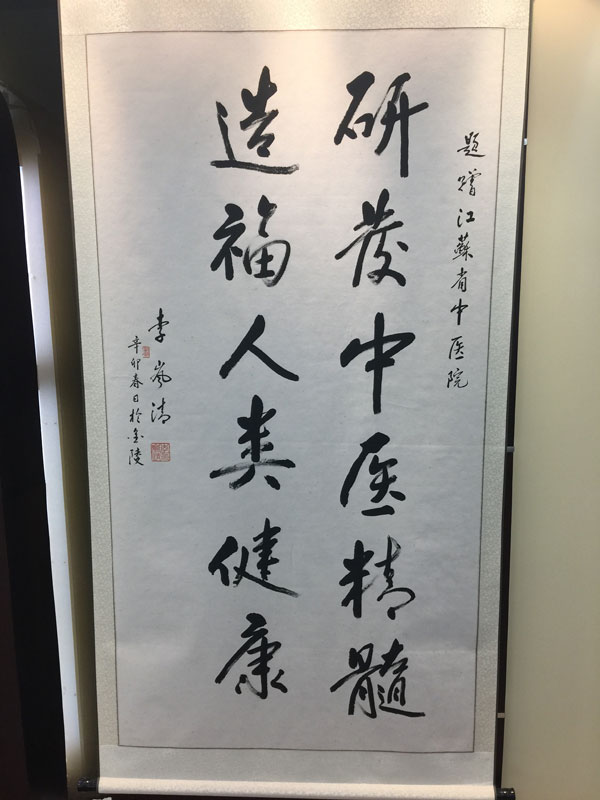 题赠江蘇省中医院
研发中医精髓
造福人类健康
李岚清
辛卯春日於金陵